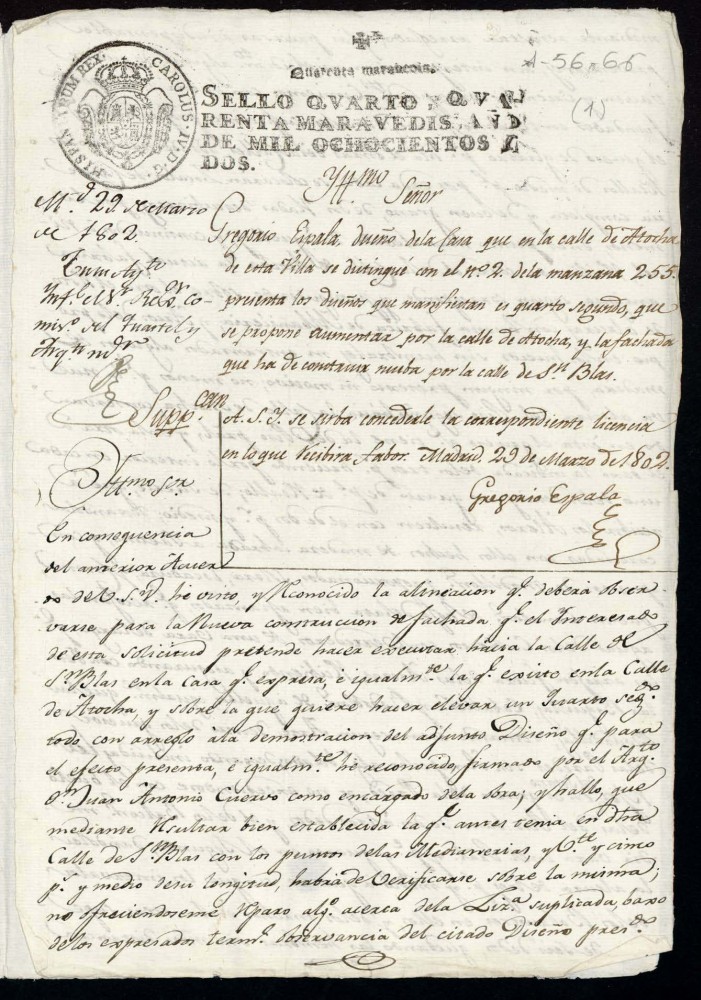 Quarenta maravedis.
1-56-66
(1)
HISPANIARUM REX. CAROLUS IV D. G.
SELLO QVARTO, QVA-
RENTA MARAVEDIS, AÑO
DE MIL OCHOCIENTOS Y
DOS.
Yllmo
Señor
Md. 29 de Marzo
de 1802.
Inf.e el Sr. Rexor. Co-
mis.o del Quartel y
Arqto mor
Gregorio Espala, dueño dela Casa que en la calle de Atocha
de esta Villa se distingue con el nº 2. dela manzana 255.
presenta los diseños que manifiestan el quarto segundo, que
se propone aumentar por la calle de Atocha, y la fachada
que ha de construir nueba por la calle de Sn Blas.
Suppcan
A. S. Y. se sirba concederle la correspondiente licencia
en lo que recibira fabor. Madrid, 29 de Marzo de 1802.
Gregorio Espala
Yllmo Sor.
En conseguencia
del anterior Acuer-
do de V. S. Y. he visto, y reconocido la alineacion q.e deberá obser-
varse para la Nueva construccion de fachada q.e el Interesado
de esta solicitud pretende hacer executar hacia la Calle de
Sn Blas en la Casa q.e expresa, é igualmte la q.e existe en la Calle
de Atocha, y sobre la que quiere hacer elevar un Quarto segdo
todo con arreglo ála demostracion del adjunto Diseño q.e para
el efecto presenta, é igualmte he reconocido, firmado por el Arqto
Dn Juan Antonio Cuervo como encargado dela obra; y hallo, que
mediante resultar bien establecida la q.e antes tenia en dtra
Calle de Sn Blas con los puntos delas Medianerias, y Vte y cinco
ps. y medio de su longitud, habrá de verificarse sobre la misma;
no ofreciendoseme reparo algo acerca dela Liza suplicada, baxo
delos expresados termos. observancia del citado Diseño presdo